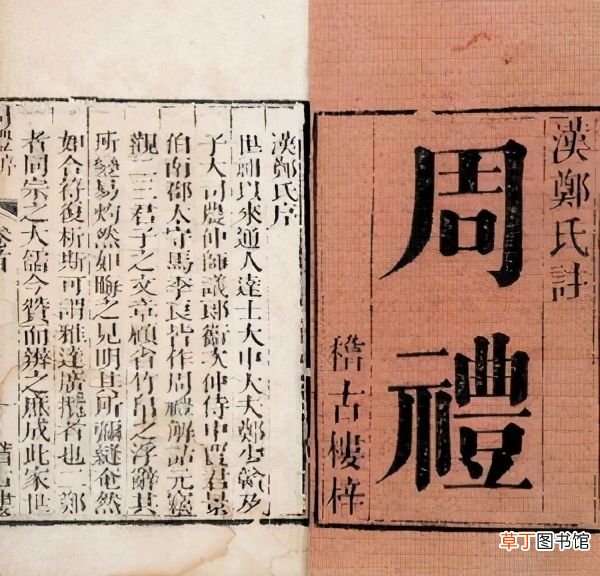 漢鄭氏註
周禮
稽古樓梓
漢鄭氏序
世祖以來通人達士大中大夫鄭少贛及
子大司農仲師議郎衞次仲侍中賈君景
伯南郡太守馬季長皆作周禮解詁元竊
觀二三君子之文章顧省竹帛之浮辭其
所變易灼然如晦之見明其所彌縫奄然
如合符復析斯可謂雅達廣攬者也二鄭
者同宗之大儒今贊而辨之庶成此家世
卷首
草丁图书馆